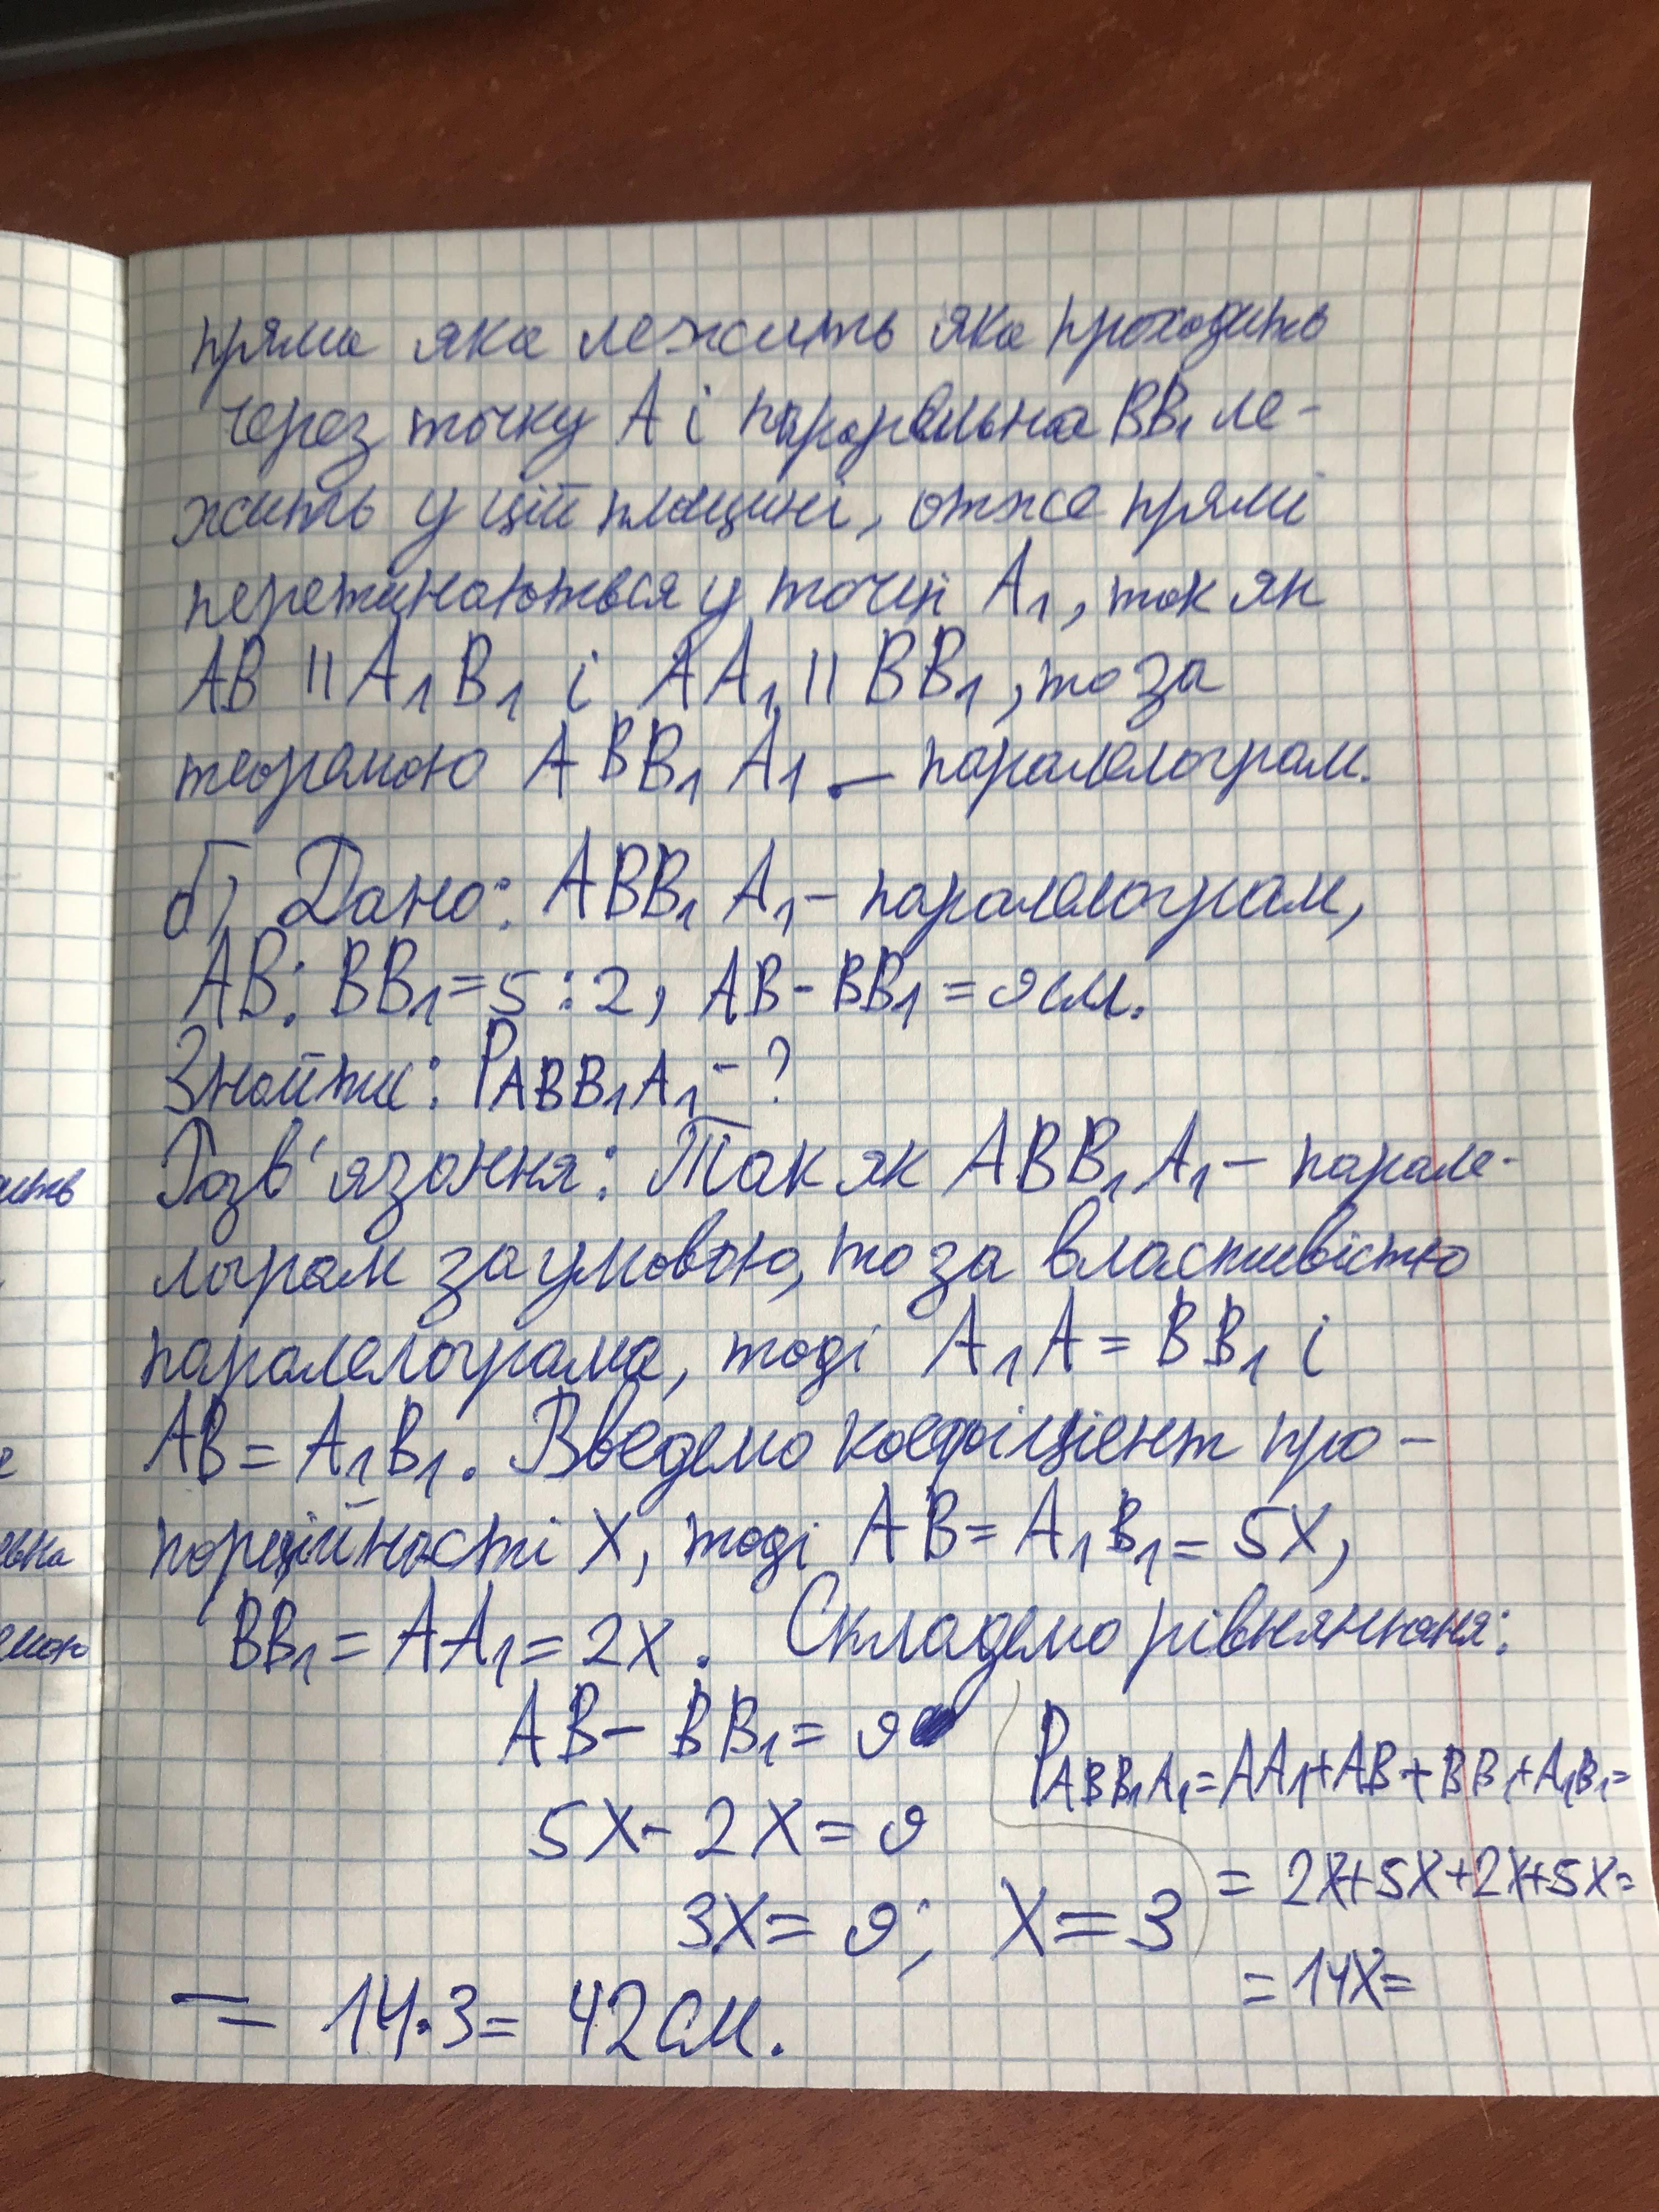 пряма яка лежить яка проходить
через точку A і паралельна BB₁ ле-
жить у цій площині, отже прямі
перетинаються у точці A₁, так як
AB || A₁B₁ і AA₁ || BB₁, то за
теоремою ABB₁A₁ - паралелограм.
б) Дано: ABB₁A₁ - паралелограм,
AB : BB₁ = 5 : 2, AB - BB₁ = 9 см.
Знайти: PABB₁A₁ - ?
Розв'язання: Так як ABB₁A₁ - парале-
лограм за умовою, то за властивістю
паралелограма, тоді A₁A = BB₁ і
AB = A₁B₁. Введемо коефіцієнт про-
порційності X, тоді AB = A₁B₁ = 5X,
BB₁ = AA₁ = 2X. Складемо рівняння:
AB - BB₁ = 9
5X - 2X = 9
3X = 9; X = 3
PABB₁A₁ = AA₁ + AB + BB₁ + A₁B₁ =
= 2X + 5X + 2X + 5X =
= 14X =
= 14 · 3 = 42 см.